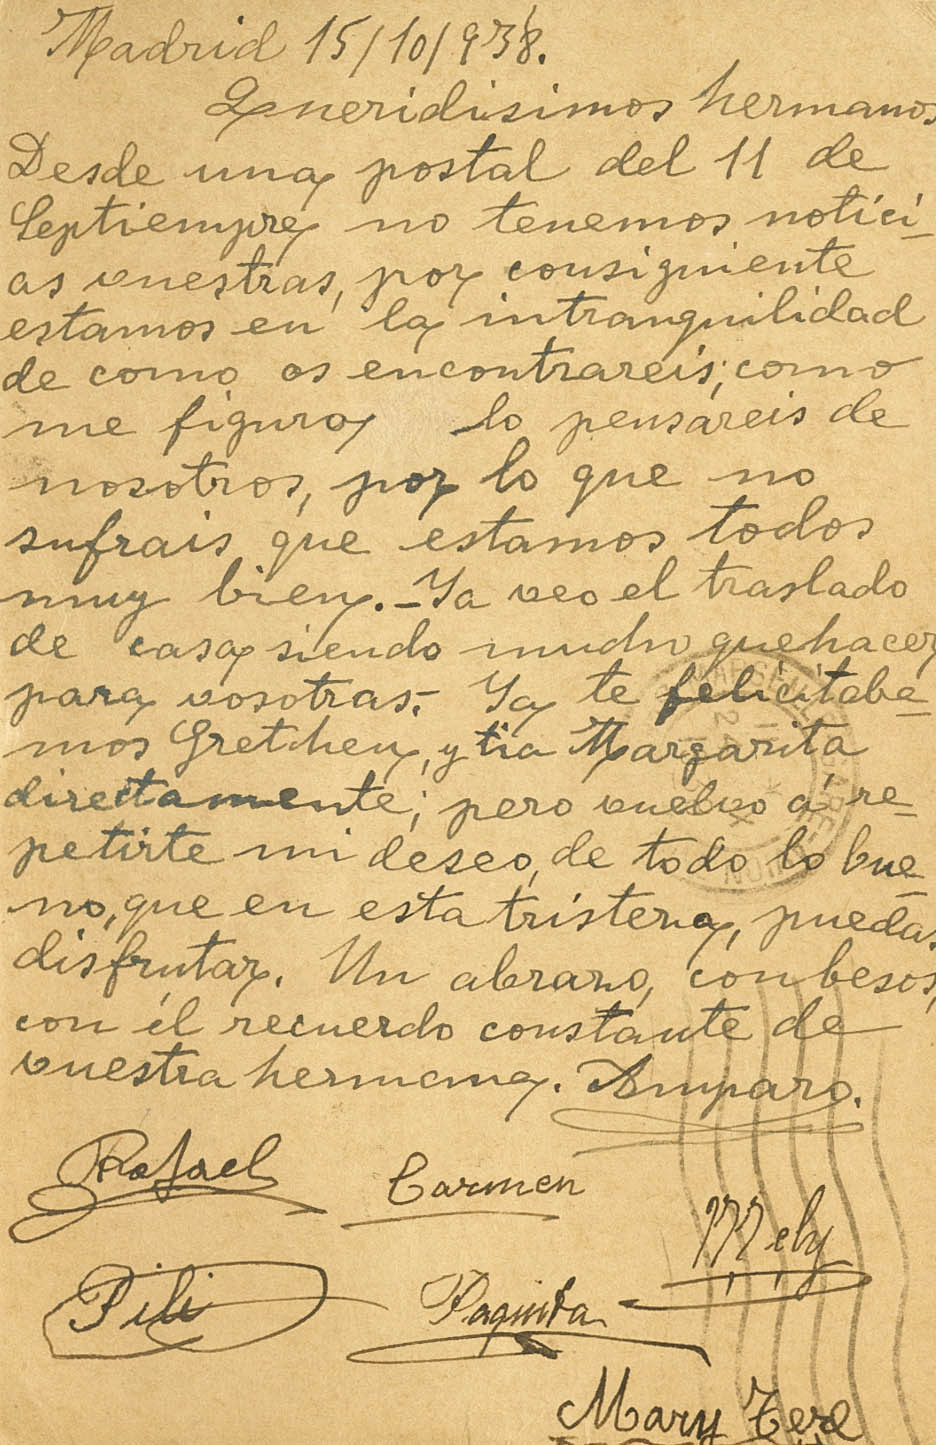 Madrid 15/10/938.
Queridisimos hermanos
Desde una postal del 11 de
Septiempre no tenemos notici-
as vuestras, por consiguiente
estamos en la intranquilidad
de como os encontrareis; como
me figuro lo pensáreis de
nosotros, por lo que no
sufrais que estamos todos
muy bien. - Ya veo el traslado
de casa siendo mucho quehacer
para vosotras.- Ya te felicitaba-
mos Gretchen, y tia Margarita
directamente; pero vuelvo á re-
petirte mi deseo, de todo lo bue-
no, que en esta tristeza, puedas
disfrutar. Un abrazo, con besos,
con él recuerdo constante de
vuestra hermana. Amparo.
Rafael
Carmen
Mely
Pili
Paquita
Mary Tere
MARSEILLE GARE